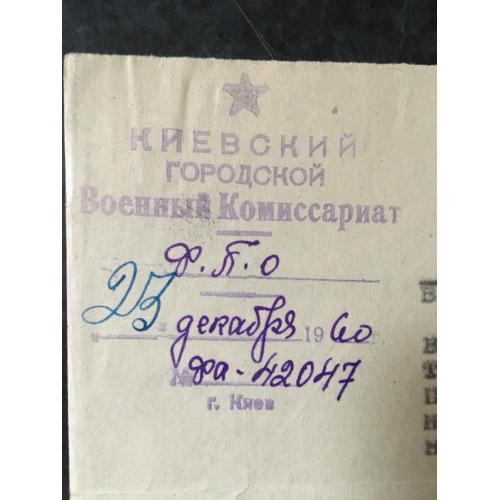 КИЕВСКИЙ
ГОРОДСКОЙ
Военный Комиссариат
Ф.П.О
23
декабря 1960
№ фа-42047
г. Киев
В
В
Т
П
Н